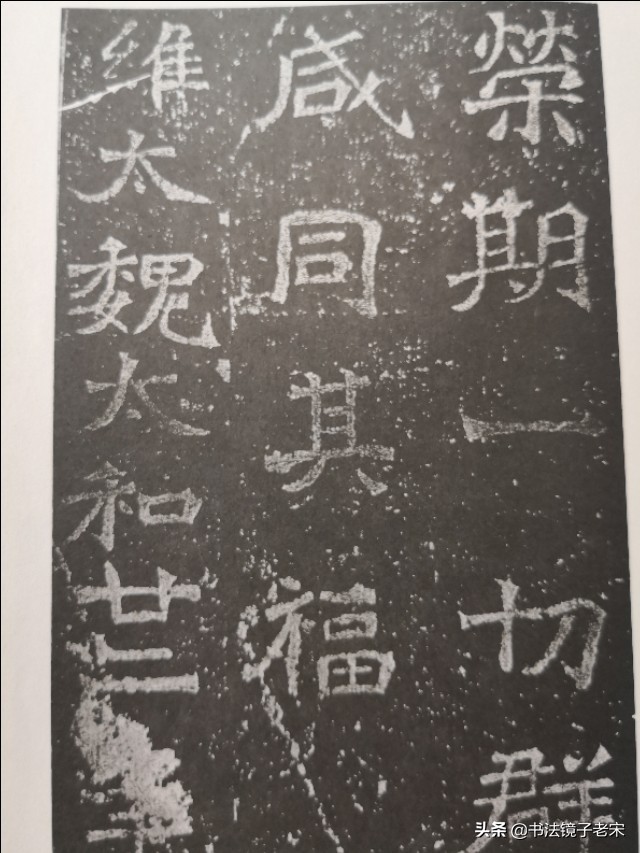 榮期一切群
咸同其福
維太魏太和廿二年
头条 @书法镜子老宋